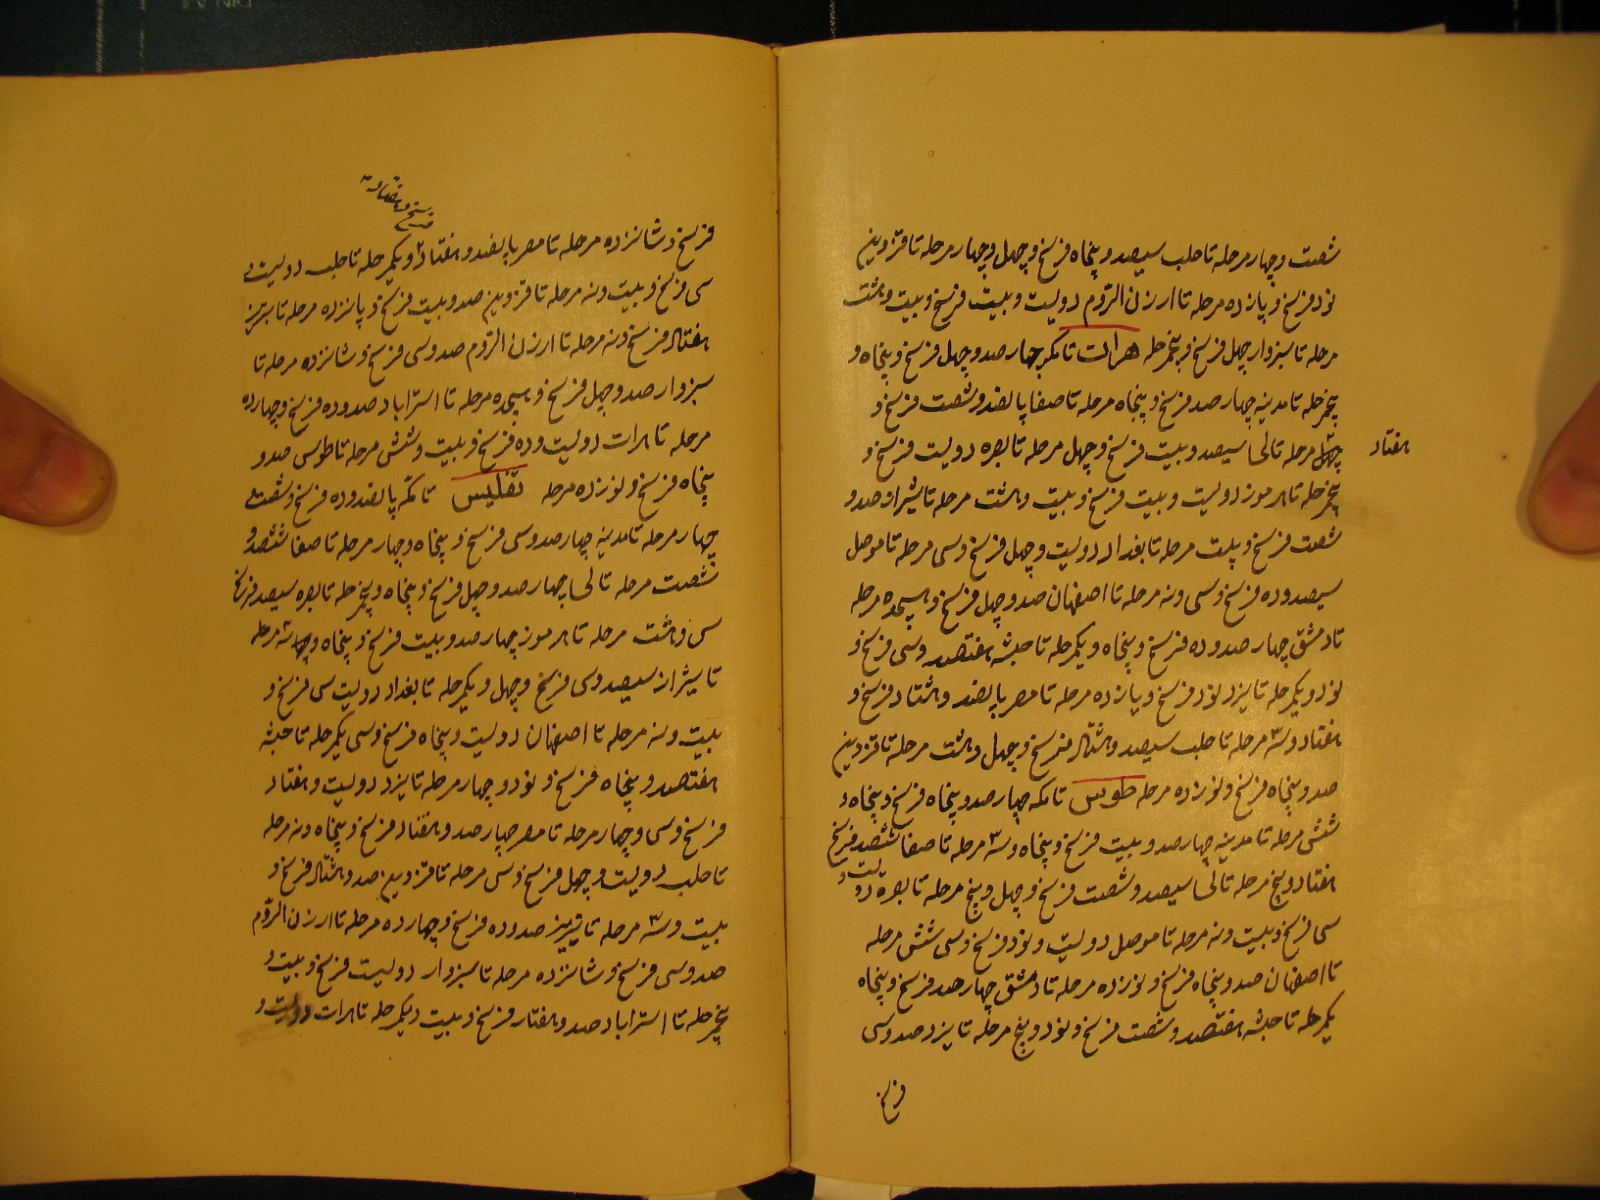 شصت و چهار مرحله تا حلب سیصد و پنجاه فرسخ و چهل و چهار مرحله تا قزوین
نود فرسخ و یازده مرحله تا ارزن الرّوم دویست و بیست فرسخ و بیست و هشت
مرحله تا سبزوار چهل فرسخ و پنجمرحله هرات تا مکه چهار صد و چهل فرسخ و پنجاه و
پنجمرحله تا مدینه چهار صد فرسخ و پنجاه مرحله تا صفا پانصد و شصت فرسخ و
هفتاد
چهل مرحله تا لحا سیصد و بیست فرسخ و چهل مرحله تا بصره دویست فرسخ و
پنجمرحله تا هرموز دویست و بیست فرسخ و بیست و هشت مرحله تا شیراز صد و
شصت فرسخ و بیست مرحله تا بغداد دویست و چهل فرسخ و سی مرحله تا موصل
سیصد و ده فرسخ و سی و نه مرحله تا اصفهان صد و چهل فرسخ و هیجده مرحله
تا دمشق چهار صد و ده فرسخ و پنجاه و یکمرحله تا حبشه هفتصد و سی فرسخ و
نود و یکمرحله تا یزد نود فرسخ و یازده مرحله تا مصر پانصد و هشتاد فرسخ و
هفتاد و سه مرحله تا حلب سیصد و هشتاد فرسخ و چهل و هشت مرحله تا قزوین
صد و پنجاه فرسخ و نوزده مرحله طوس تا مکه چهار صد و پنجاه فرسخ و پنجاه و
شش مرحله تا مدینه چهار صد و بیست فرسخ و پنجاه و سه مرحله تا صفا ششصد فرسخ
هفتاد و پنج مرحله تا لحا سیصد و شصت فرسخ و چهل و پنج مرحله تا بصره دویست و
سی فرسخ و بیست و نه مرحله تا موصل دویست و نود فرسخ و سی شش مرحله
تا اصفهان صد و پنجاه فرسخ و نوزده مرحله تا دمشق چهار صد فرسخ و پنجاه
یکمرحله تا حبشه هفتصد و شصت فرسخ و نود و پنج مرحله تا یزد صد و سی
فرسخ
فرسخ و هفتاد
فرسخ و شانزده مرحله تا مصر پانصد و هفتاد و یکمرحله تا حلب دویست و
سی فرسخ و بیست و نه مرحله تا قزوین صد و بیست فرسخ و پانزده مرحله تا تبریز
هفتاد فرسخ و نه مرحله تا ارزن الرّوم صد و سی فرسخ و شانزده مرحله تا
سبزوار صد و چهل فرسخ و هیجده مرحله تا استراباد صد و ده فرسخ و چهارده
مرحله تا هرات دویست و ده فرسخ و بیست و شش مرحله تا طوس صد و
پنجاه فرسخ و نوزده مرحله تفلیس تا مکّه پانصد و ده فرسخ و شصت و
چهار مرحله تا مدینه چهار صد و سی فرسخ و پنجاه و چهار مرحله تا صفا ششصد و
شصت مرحله تا لحا چهار صد و چهل فرسخ و پنجاه و پنجمرحله تا بصره سیصد فرسخ
سی و هشت مرحله تا هرموز چهار صد و بیست فرسخ و پنجاه و مرحله
تا شیراز سیصد و سی فرسخ و چهل و یکمرحله تا بغداد دویست سی فرسخ و
بیست و نه مرحله تا اصفهان دویست و پنجاه فرسخ و سی یکمرحله تا حبشه
هفتصد و پنجاه فرسخ و نود و چهار مرحله تا یزد دویست و هفتاد
فرسخ و سی و چهار مرحله تا مصر چهار صد و هفتاد فرسخ و پنجاه و نه مرحله
تا حلب دویست و چهل فرسخ و سی مرحله تا قزوین صد و هشتاد فرسخ و
بیست و سه مرحله تا تبریز صد و ده فرسخ و چهارده مرحله تا ارزن الرّوم
صد و سی فرسخ و شانزده مرحله تا سبزوار دویست فرسخ و بیست و
پنجمرحله تا استراباد صد و هفتاد فرسخ و بیست و یکمرحله تا هرات دویست و